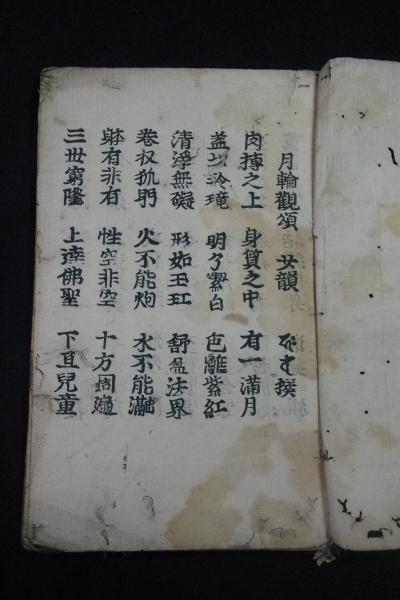 月輪觀頌 廿韻 撰
肉摶之上 身算之中 有一滿月
蓋以冷瓏 明了潔白 色離紫紅
清淨無礙 形如玉玒 舒盈法界
卷 火不能炮 水不能
有非有 性空非空 十方周遍
三世窮隆 上達佛聖 下亘兒童